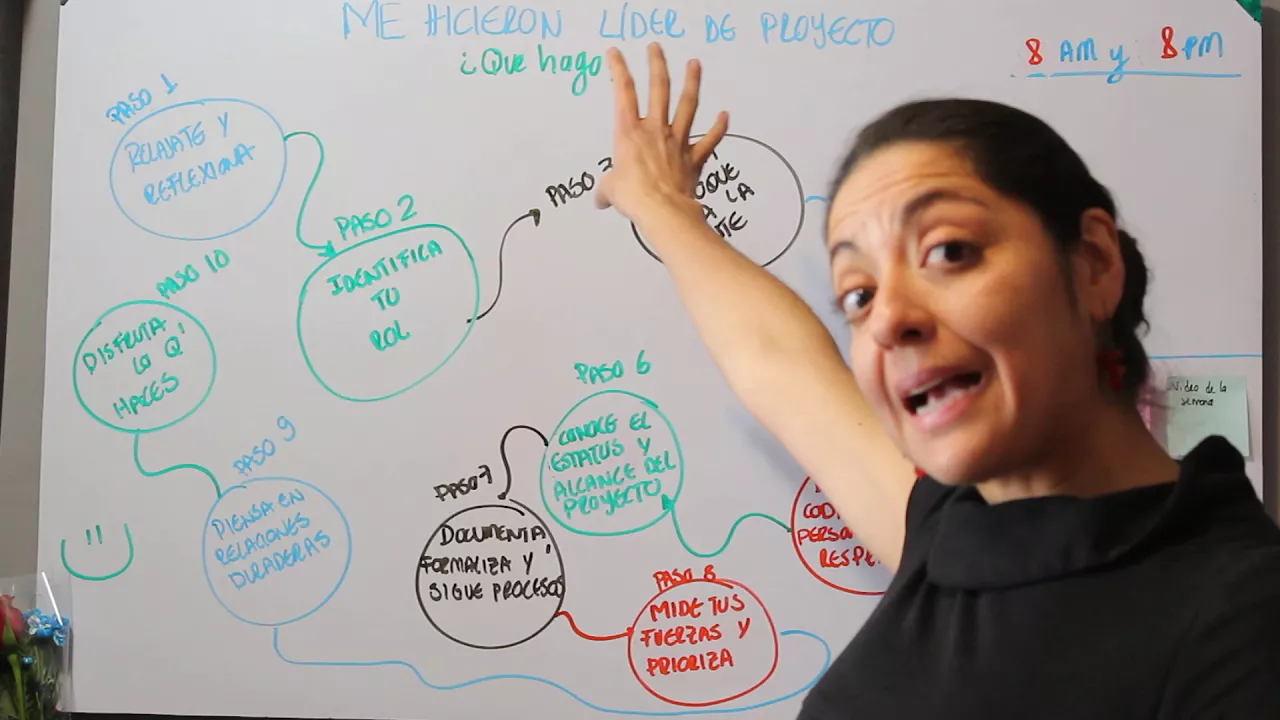 ME HICIERON LÍDER DE PROYECTO
¿Que hago
8 AM y 8 PM
PASO 1
RELAJATE Y
REFLEXIONA
PASO 2
IDENTIFICA
TU
ROL
PASO
LA
PASO 6
CONOCE EL
ESTATUS Y
ALCANCE DEL
PROYECTO
PASO 7
DOCUMENTA
FORMALIZA Y
SIGUE PROCESOS
PASO 8
MIDE TUS
FUERZAS Y
PRIORIZA
PASO 9
PIENSA EN
RELACIONES
DURADERAS
PASO 10
DISFRUTA
LO Q'
HACES
Video de la
semana